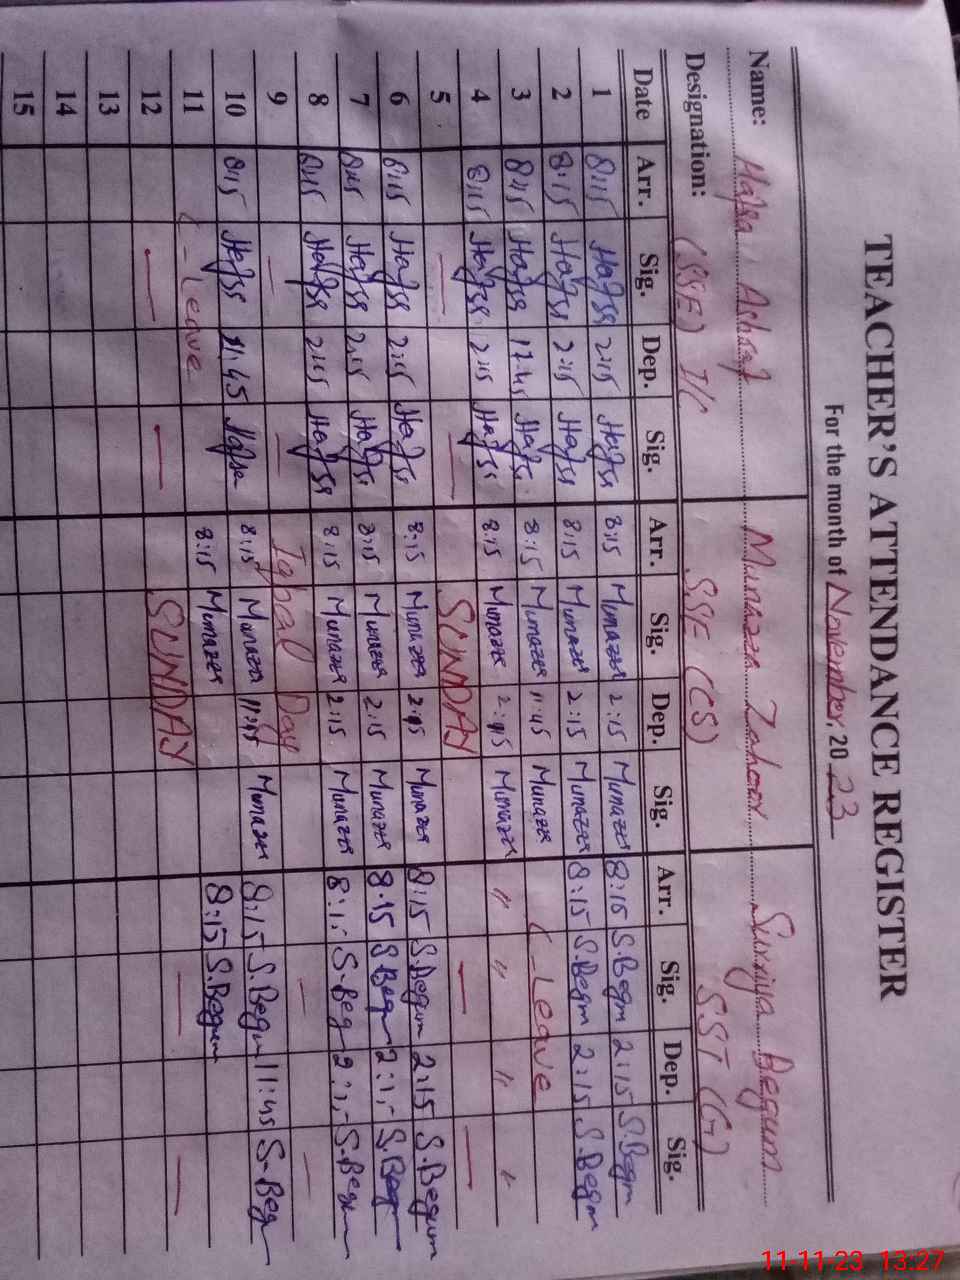 TEACHER'S ATTENDANCE REGISTER
For the month of November, 2023
Name: Hafsa Ashraf Munazza Zahoor Surriya Begum
Designation: (SSE) I/C SSE (CS) SST (G)
Date Arr. Sig. Dep. Sig. Arr. Sig. Dep. Sig. Arr. Sig. Dep. Sig.
1 8:15 Hafsa 2:15 Hafsa 8:15 Munazza 2:15 Munazza 8:15 S.Begm 2:15 S.Begm
2 8:15 Hafsa 2:15 Hafsa 8:15 Munazza 2:15 Munazza 8:15 S.Begm 2:15 S.Begm
3 8:15 Hafsa 12:45 Hafsa 8:15 Munazza 11:45 Munazza Leave
4 8:15 Hafsa 2:15 Hafsa 8:15 Munazza 2:15 Munazza " " " "
5 — — SUNDAY — —
6 8:15 Hafsa 2:15 Hafsa 8:15 Munazza 2:15 Munazza 8:15 S.Begum 2:15 S.Begum
7 8:15 Hafsa 2:15 Hafsa 8:15 Munazza 2:15 Munazza 8:15 S.Begm 2:1,- S.Begm
8 8:15 Hafsa 2:15 Hafsa 8:15 Munazza 2:15 Munazza 8:1,- S.Beg 2:1,- S.Begm
9 — — Iqbal Day — —
10 8:15 Hafsa 11:45 Hafsa 8:15 Munazza 11:45 Munazza 8:15 S.Begm 11:45 S.Beg
11 Leave 8:15 Munazza 8:15 S.Begum
12 — — SUNDAY — —
13
14
15
11-11-23 13:27